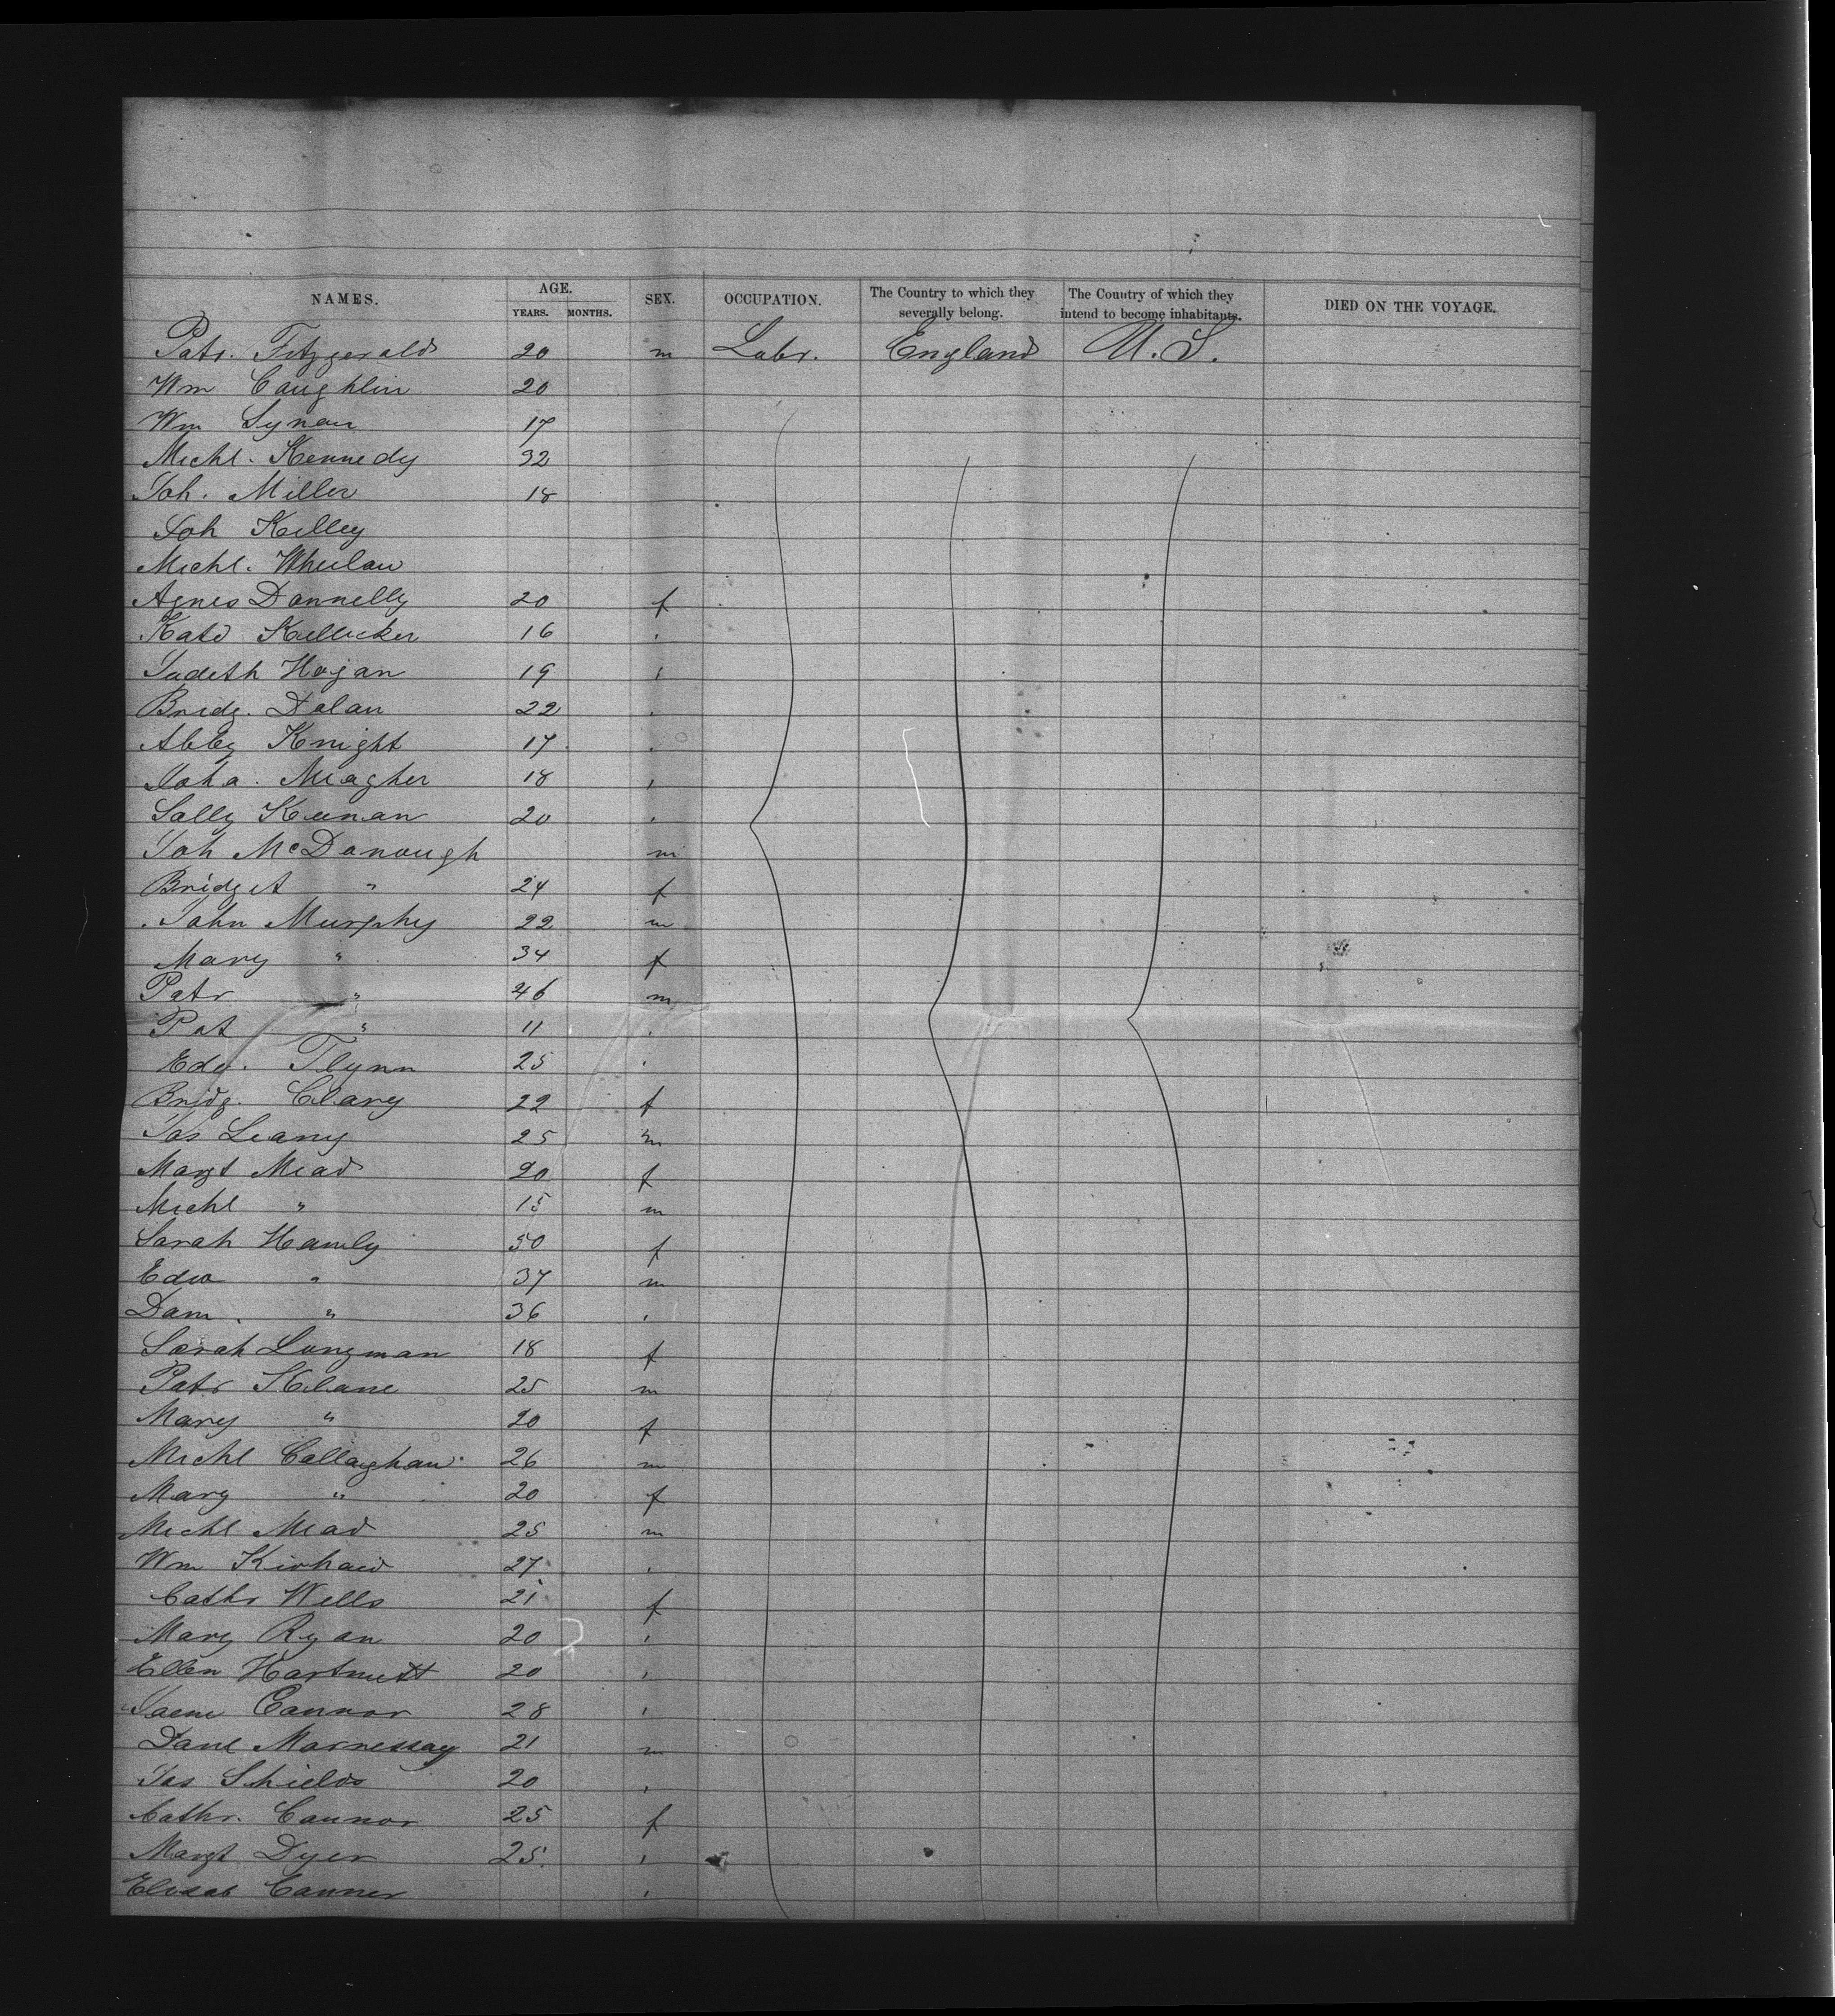 NAMES. AGE. SEX. OCCUPATION. The Country to which they severally belong. The Country of which they intend to become inhabitants. DIED ON THE VOYAGE.
YEARS. MONTHS.
Patr. Fitzgerald 20 m Labr. England U.S.
Wm Coughlin 20
Wm Synan 17
Michl. Kennedy 32
Joh. Miller 18
Joh Kelley
Michl. Wheelan
Agnes Donnelly 20 f
Kate Kellicker 16 "
Judeth Hogan 19 "
Bridg. Dolan 22 "
Abby Knight 17 "
Joha. Meagher 18 "
Sally Keenan 20 "
Joh McDonough m
Bridget " 24 f
John Murphy 22 m
Mary " 34 f
Patr " 46 m
Pat " 11 "
Edw. Flynn 25 "
Bridg. Clary 22 f
Jas Leany 25 m
Margt Mead 20 f
Michl " 15 m
Sarah Hanly 50 f
Edw " 37 m
Dam. " 36 "
Sarah Longman 18 f
Patr Kleane 25 m
Mary " 20 f
Michl Callaghan 26 m
Mary " 20 f
Michl Mead 25 m
Wm 27 "
Cathr Wells 21 f
Mary Ryan 20 "
Ellen Hartnett 20 "
Connor 28 "
Danl 21 m
Jas Shields 20 "
Cathr. Connor 25 f
Margt Dyer 25. "
Elisab Conner "